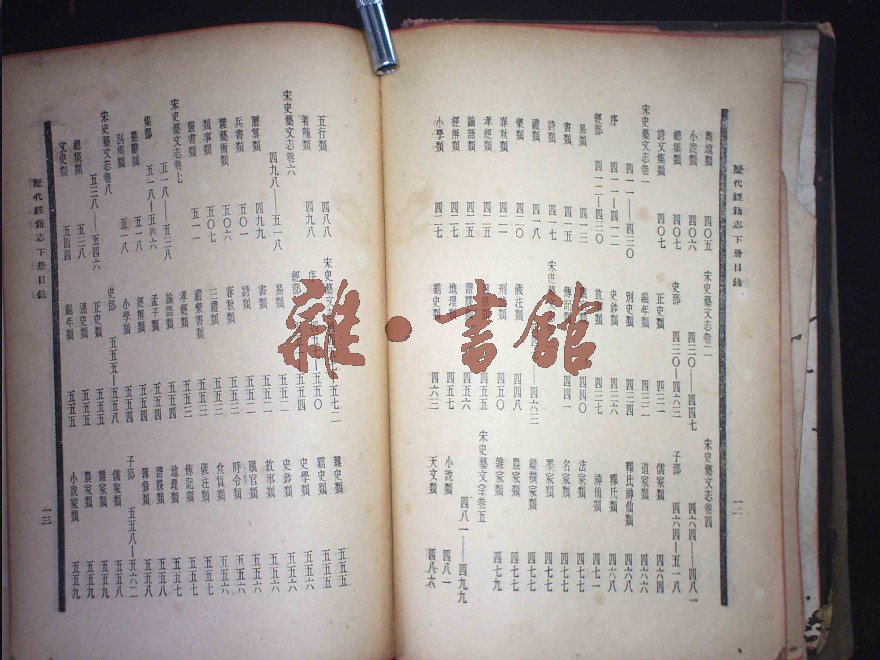 歷代經籍志下册目錄
一二
輿地類 四〇五
小說類 四〇六
總集類 四〇七
詩文集類 四〇七
宋史藝文志卷一 四一一—四三〇
序 四一一—四一二
經部 四一二—四三〇
易類 四一三
書類 四一五
詩類 四一七
禮類 四一八
樂類 四二〇
春秋類 四二一
孝經類 四二五
論語類 四二五
經解類 四二七
小學類 四二七
宋史藝文志卷二 四三〇—四四七
史部 四三〇—四六三
正史類 四三一
編年類 四三二
別史類 四三四
史鈔類 四三六
故事類 四三七
四四〇
傳記類 四四一
宋史藝文志 四六三
儀注類 四四八
刑法類 四五〇
四五五
譜牒類 四五六
地理類 四五七
霸史類 四六三
宋史藝文志卷四 四六四—四八一
子部 四六四—五一八
儒家類 四六四
道家類 四六六
釋氏神仙類 四六八
釋氏類 四六八
神仙類 四七一
法家類 四七七
名家類 四七七
墨家類 四七七
縱橫家類 四七七
農家類 四七七
雜家類 四七九
宋史藝文志卷五 四八一—四九九
小說類 四八一
天文類 四八六
五行類 四八八
蓍龜類 四九八
宋史藝文志卷六 四九八—五一八
曆算類 四九九
兵書類 五〇一
雜藝術類 五〇六
類事類 五〇七
醫書類 五一一
宋史藝文志卷七 五一八—五三八
集部 五一八—五四六
楚辭類 五一八
別集類 五一八
宋史藝文志卷八 五三八—五四六
總集類 五三八
文史類 五四四
宋史藝文志 五七二
序 五五〇
經部 五五四
易類
書類 五五二
詩類 五五二
春秋類
三禮類
禮樂書類 五五三
孝經類 五五三
論語類 五五四
孟子類 五五四
經解類 五五四
小學類 五五四
史部 五五五—五五八
正史類 五五五
通史類 五五五
編年類 五五五
雜史類 五五五
霸史類 五五五
史學類 五五六
史鈔類 五五六
故事類 五五六
職官類 五五六
時令類 五五六
食貨類 五五六
儀注類 五五七
傳記類 五五七
地理類 五五七
譜牒類 五五八
簿錄類 五五八
子部 五五八—五六二
儒家類 五五八
雜家類 五五九
農家類 五五九
小說家類 五五九
歷代經籍志下册目錄
一三
雜·書館